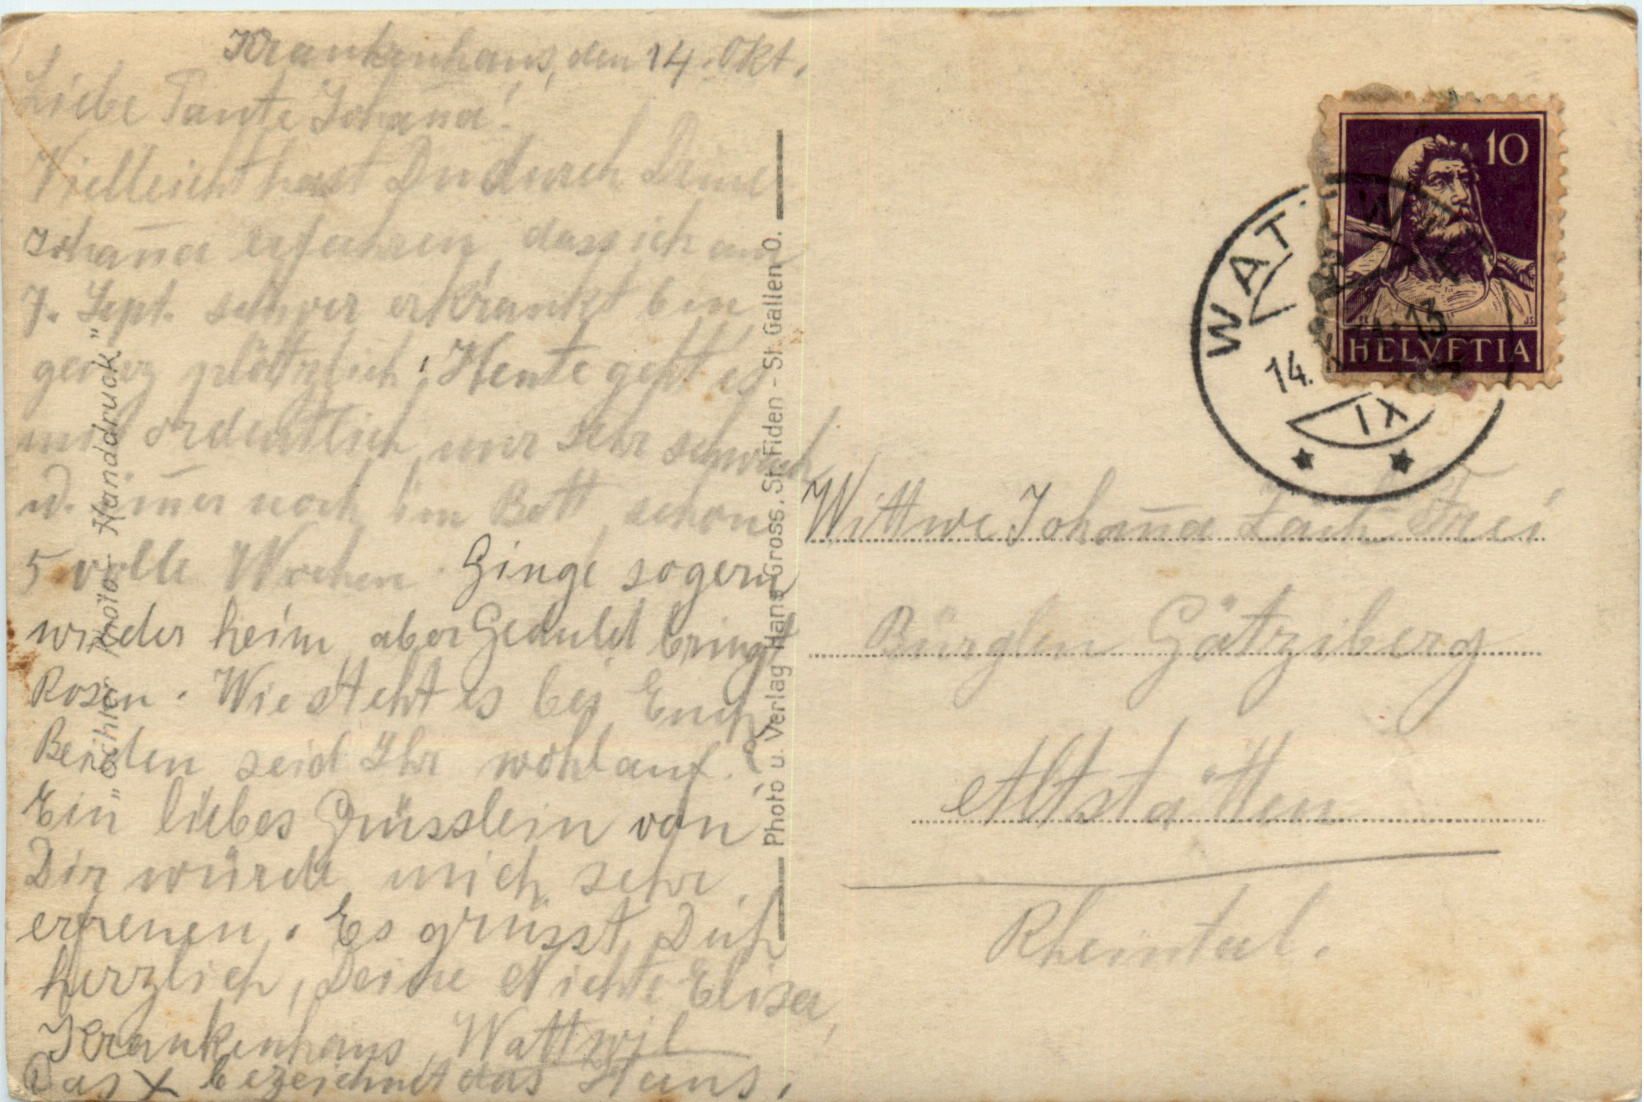 Krankenhaus, den 14. Okt.
Liebe Tante Johana!
Vielleicht hast Du durch Deine
Johana erfahren, dass ich am
7. Sept. schwer erkrankt bin
ganz plötzlich, Heute geht es
mir ordentlich, nur sehr schwach
u. imer noch im Bett schon
5 volle Wochen. Ginge so gern
wieder heim aber Geduld bringt
Rosen. Wie steht es bei Euch
Beiden seid Ihr wohlauf?
Ein liebes Grüsslein von
Dir würde mich sehr
erfreuen. Es grüsst Dich
herzlich, Deine Nichte Elisa,
Krankenhaus Wattwil
Das x bezeichnet das Haus.
Photo - Handdruck"
Photo u. Verlag Hans Gross, St. Fiden - St. Gallen O.
10
HELVETIA
WAT
14.
IX
Wittwe Johana Zäch-Frei
Bürglen Götziberg
Altstätten
Rheintal.